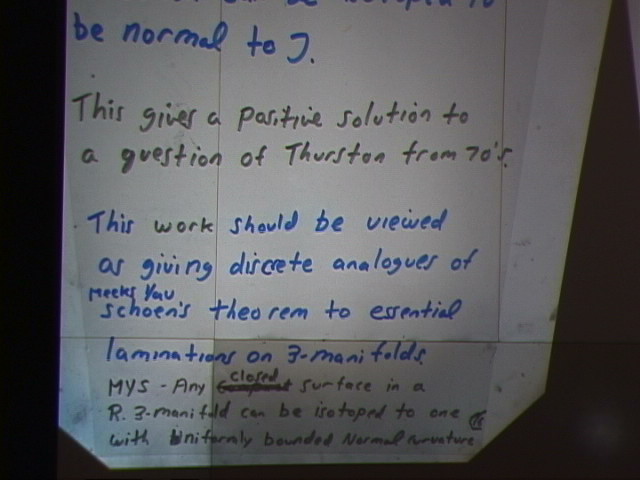 be isotoped to
be normal to J.
This gives a positive solution to
a question of Thurston from 70's.
This work should be viewed
as giving discrete analogues of
Meeks Yau
Schoen's theorem to essential
laminations on 3-manifolds.
MYS - Any closed surface in a
R. 3-manifold can be isotoped to one
with Uniformly bounded Normal curvature